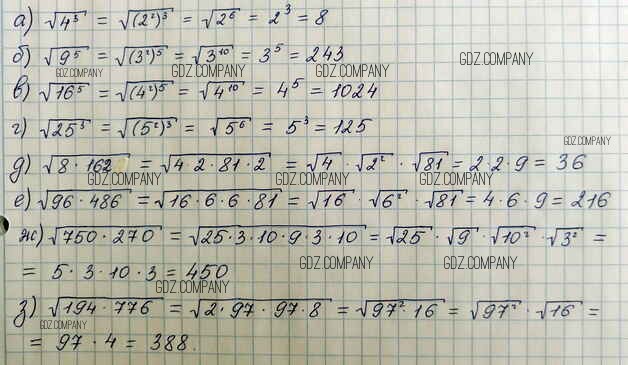 а) √4³ = √(2²)³ = √2⁶ = 2³ = 8
б) √9⁵ = √(3²)⁵ = √3¹⁰ = 3⁵ = 243
GDZ.COMPANY GDZ.COMPANY GDZ.COMPANY GDZ.COMPANY
в) √16⁵ = √(4²)⁵ = √4¹⁰ = 4⁵ = 1024
г) √25³ = √(5²)³ = √5⁶ = 5³ = 125
GDZ.COMPANY
д) √8·162 = √4·2·81·2 = √4 · √2² · √81 = 2·2·9 = 36
GDZ.COMPANY GDZ.COMPANY GDZ.COMPANY
е) √96·486 = √16·6·6·81 = √16 · √6² · √81 = 4·6·9 = 216
ж) √750·270 = √25·3·10·9·3·10 = √25 · √9 · √10² · √3² =
GDZ.COMPANY GDZ.COMPANY
= 5·3·10·3 = 450
GDZ.COMPANY
з) √194·776 = √2·97·97·8 = √97²·16 = √97² · √16 =
GDZ.COMPANY
= 97·4 = 388.